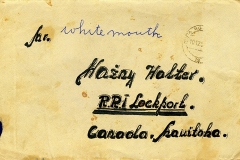 pr. whitemouth
Hažny Halter.
R.R.I Lockport.
Canada, Manitoba.